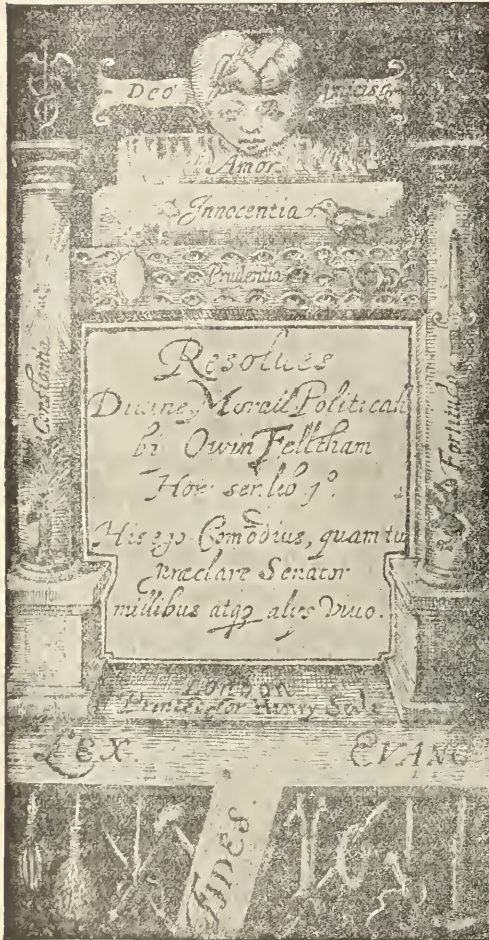 Deo
Amor
Innocentia
Prudentia
Constantia
Fortitudo
Resolues
Diuine, Morall, Politicall
bi Owin Felltham
Hor: ser. lib 1º.
His ego Comodius, quam tu
præclare Senator
millibus atqz alys Viuo.
London
Printed for Henry Seile
LEX.
EVANG
FIDES.